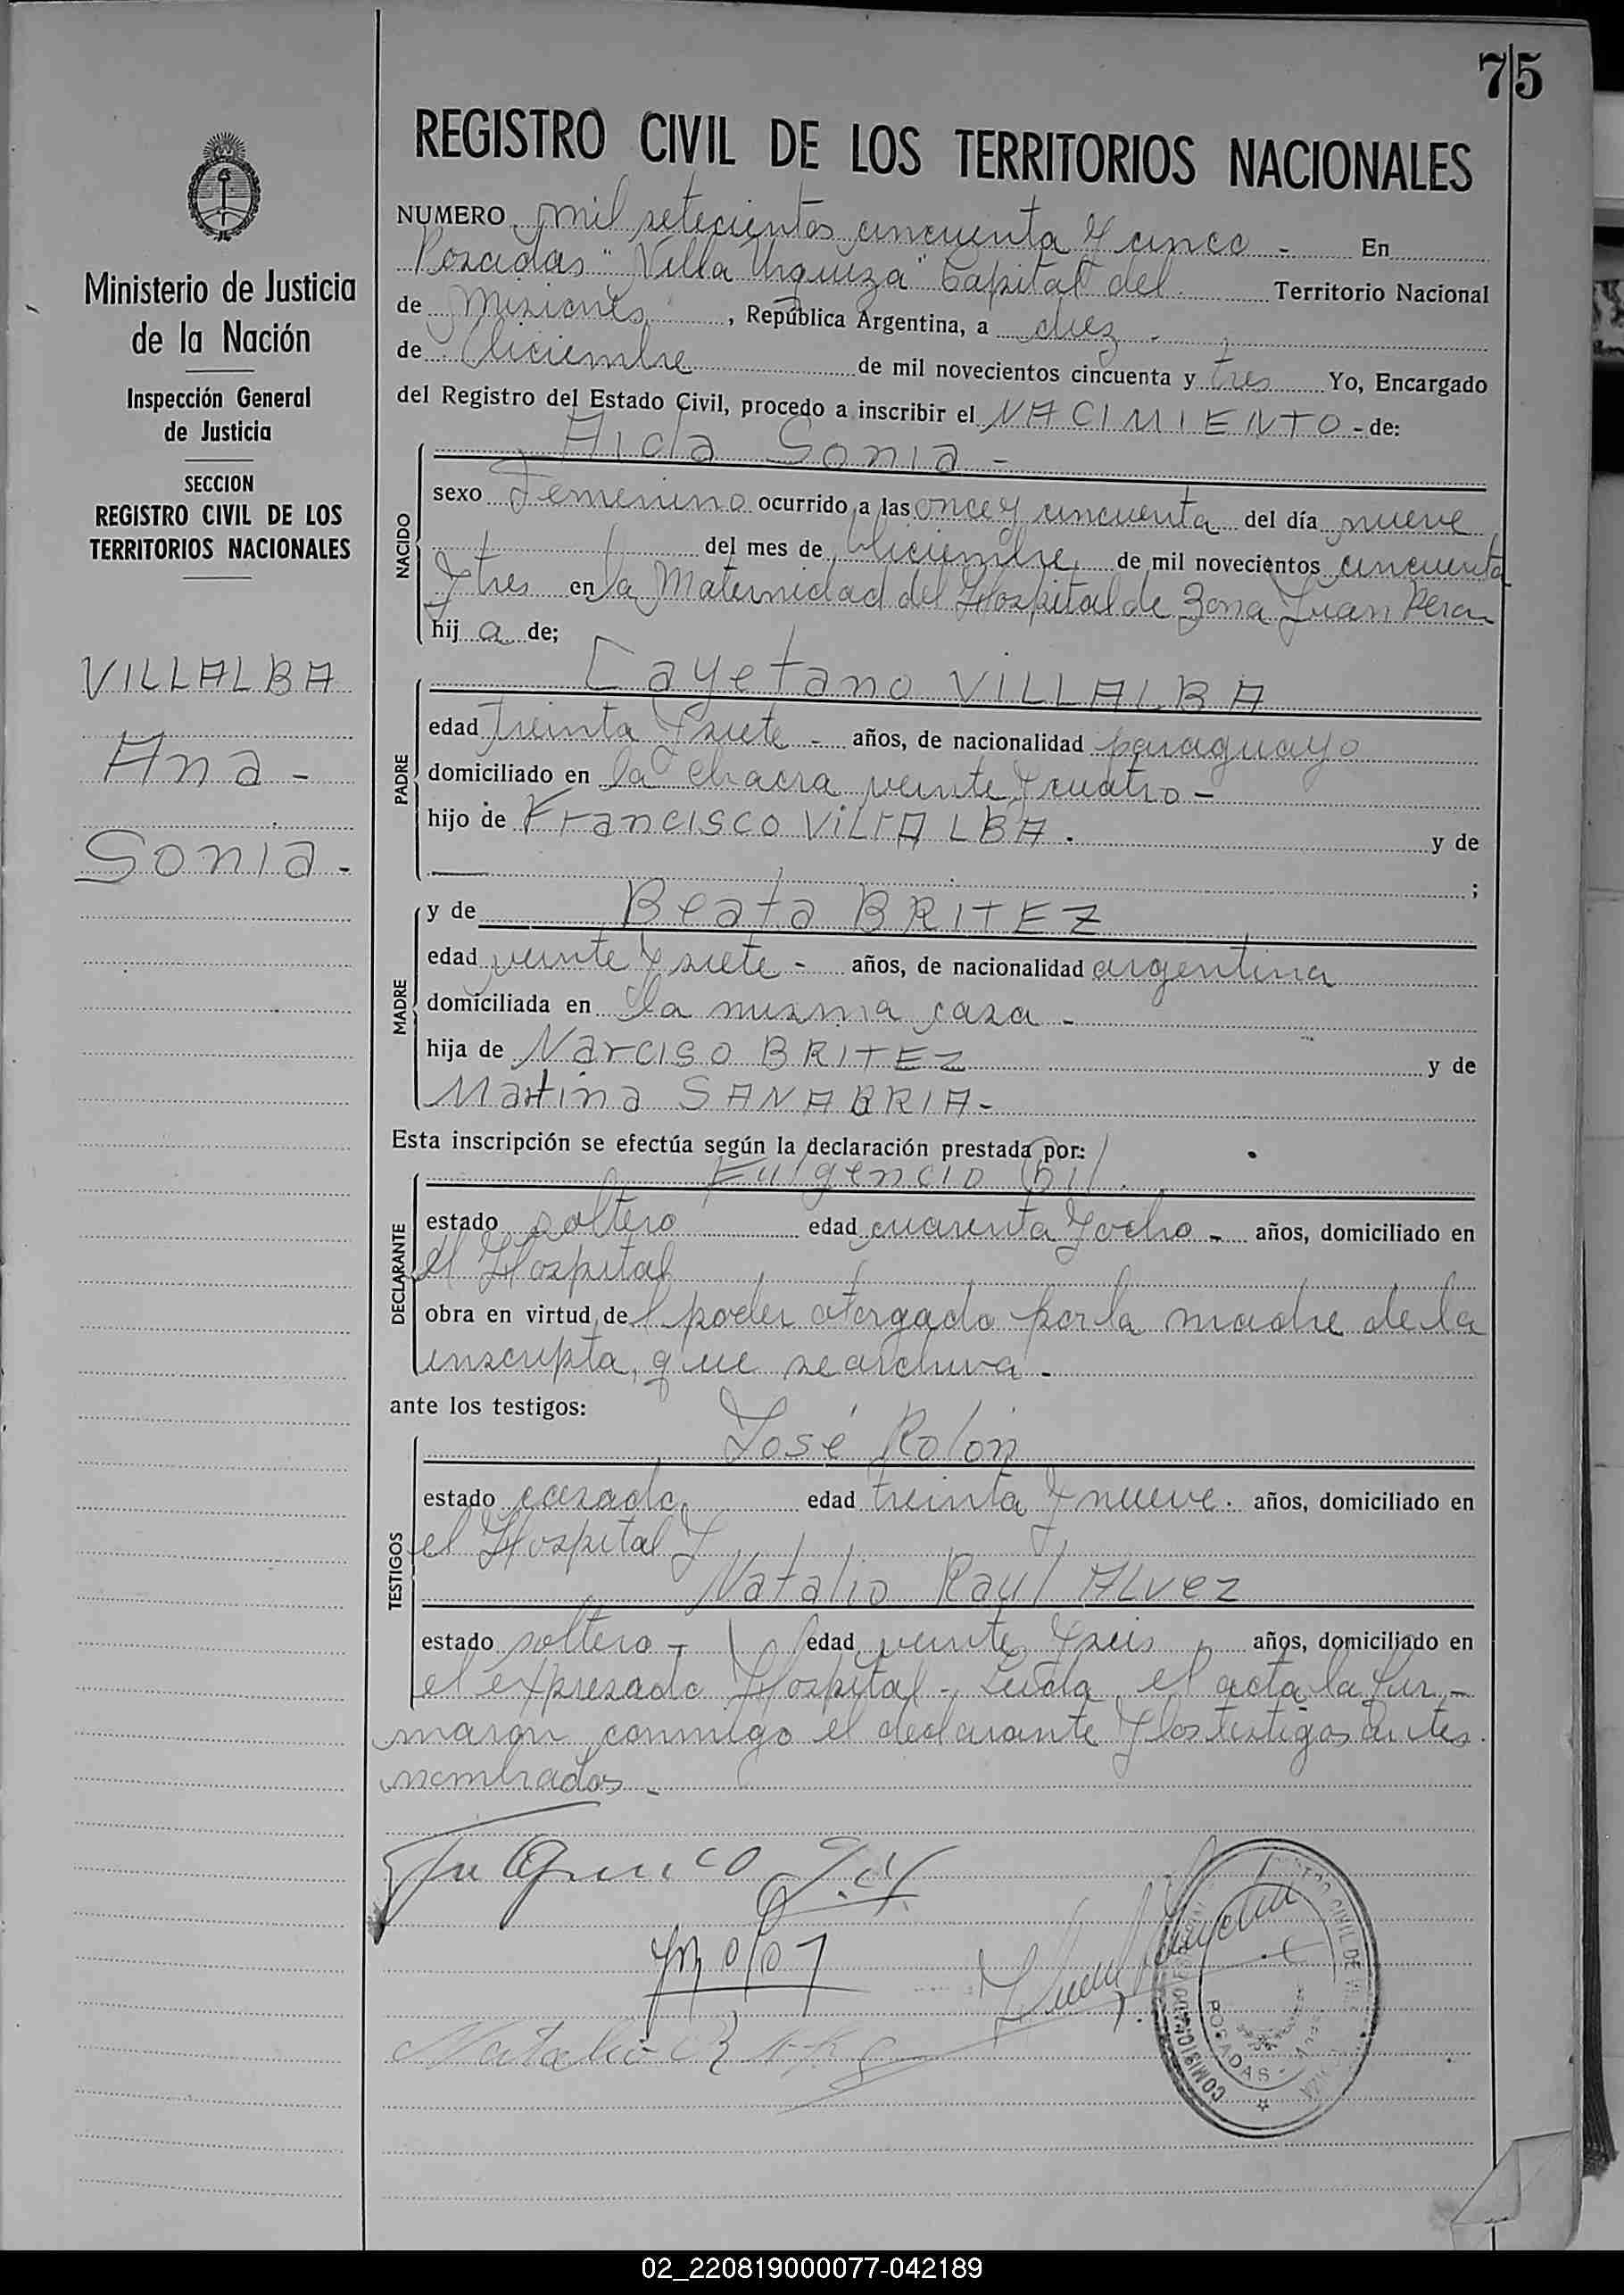 75
REGISTRO CIVIL DE LOS TERRITORIOS NACIONALES
Ministerio de Justicia
de la Nación
Inspección General
de Justicia
SECCION
REGISTRO CIVIL DE LOS
TERRITORIOS NACIONALES
VILLALBA
Ana -
Sonia -
NUMERO mil setecientos cincuenta y cinco - En
Posadas "Villa Urquiza" Capital del Territorio Nacional
de Misiones, República Argentina, a diez -
de Diciembre de mil novecientos cincuenta y tres Yo, Encargado
del Registro del Estado Civil, procedo a inscribir el NACIMIENTO - de:
Aida Sonia -
NACIDO
sexo Femenino ocurrido a las once y cincuenta del día nueve
del mes de Diciembre de mil novecientos cincuenta
y tres en la Maternidad del Hospital de Zona Juan Peron
hij a de;
Cayetano VILLALBA
PADRE
edad treinta y siete - años, de nacionalidad paraguayo
domiciliado en la chacra veinte y cuatro -
hijo de Francisco VILLALBA. y de
;
y de Beata BRITEZ
MADRE
edad veinte y siete - años, de nacionalidad argentina
domiciliada en la misma casa -
hija de Narciso BRITEZ y de
Martina SANABRIA -
Esta inscripción se efectúa según la declaración prestada por:
Fulgencio Gil.
DECLARANTE
estado soltero edad cuarenta y ocho - años, domiciliado en
el Hospital
obra en virtud de l poder otorgado por la madre de la
inscripta, que se archiva -
ante los testigos:
José Rolón
TESTIGOS
estado casado edad treinta y nueve. años, domiciliado en
el Hospital y
Natalio Raul ALVEZ
estado soltero - edad veinte y seis años, domiciliado en
el expresado Hospital - Leida el acta la fir-
maron conmigo el declarante y los testigos antes
nombrados -
POSADAS
02_220819000077-042189